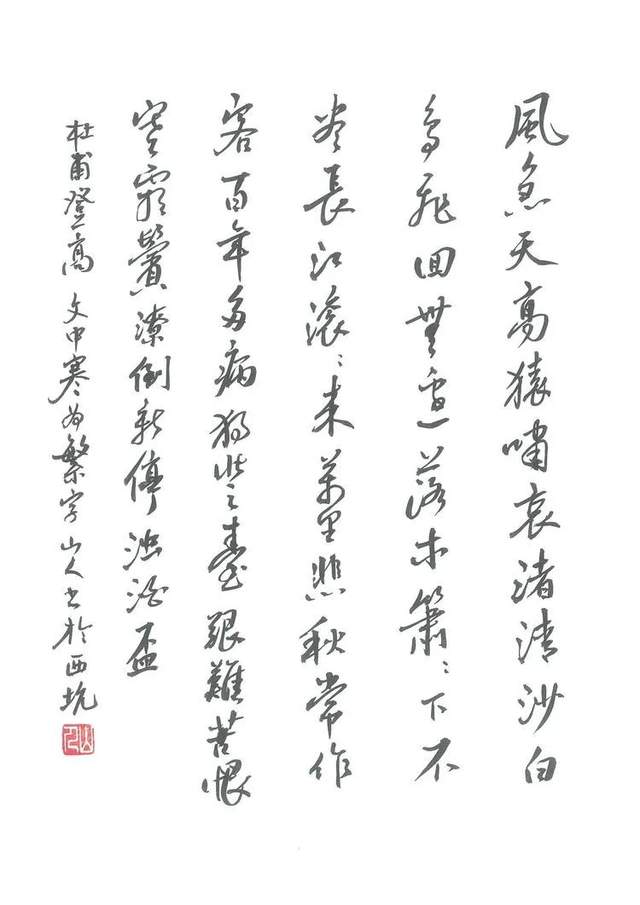 風急天高猿嘯哀渚清沙白
鳥飛回無邊落木簫〻下不
尽長江滚〻来萬里悲秋常作
客百年多病獨登臺艱難苦恨
寒霜鬢潦倒新停濁酒盃
杜甫登高 文中寒为繁字 山人書於西坑